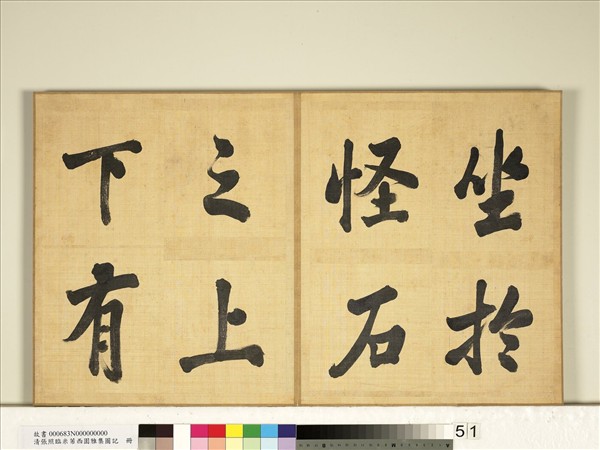 坐於
怪石
之上
下有
故書 000683N000000000
清張照臨米芾西園雅集圖記 冊
51